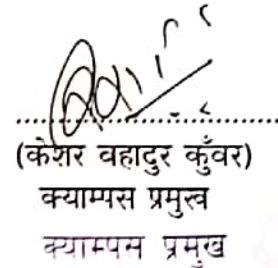 (केशर वहादुर कुँवर)
क्याम्पस प्रमुख
क्याम्पस प्रमुख